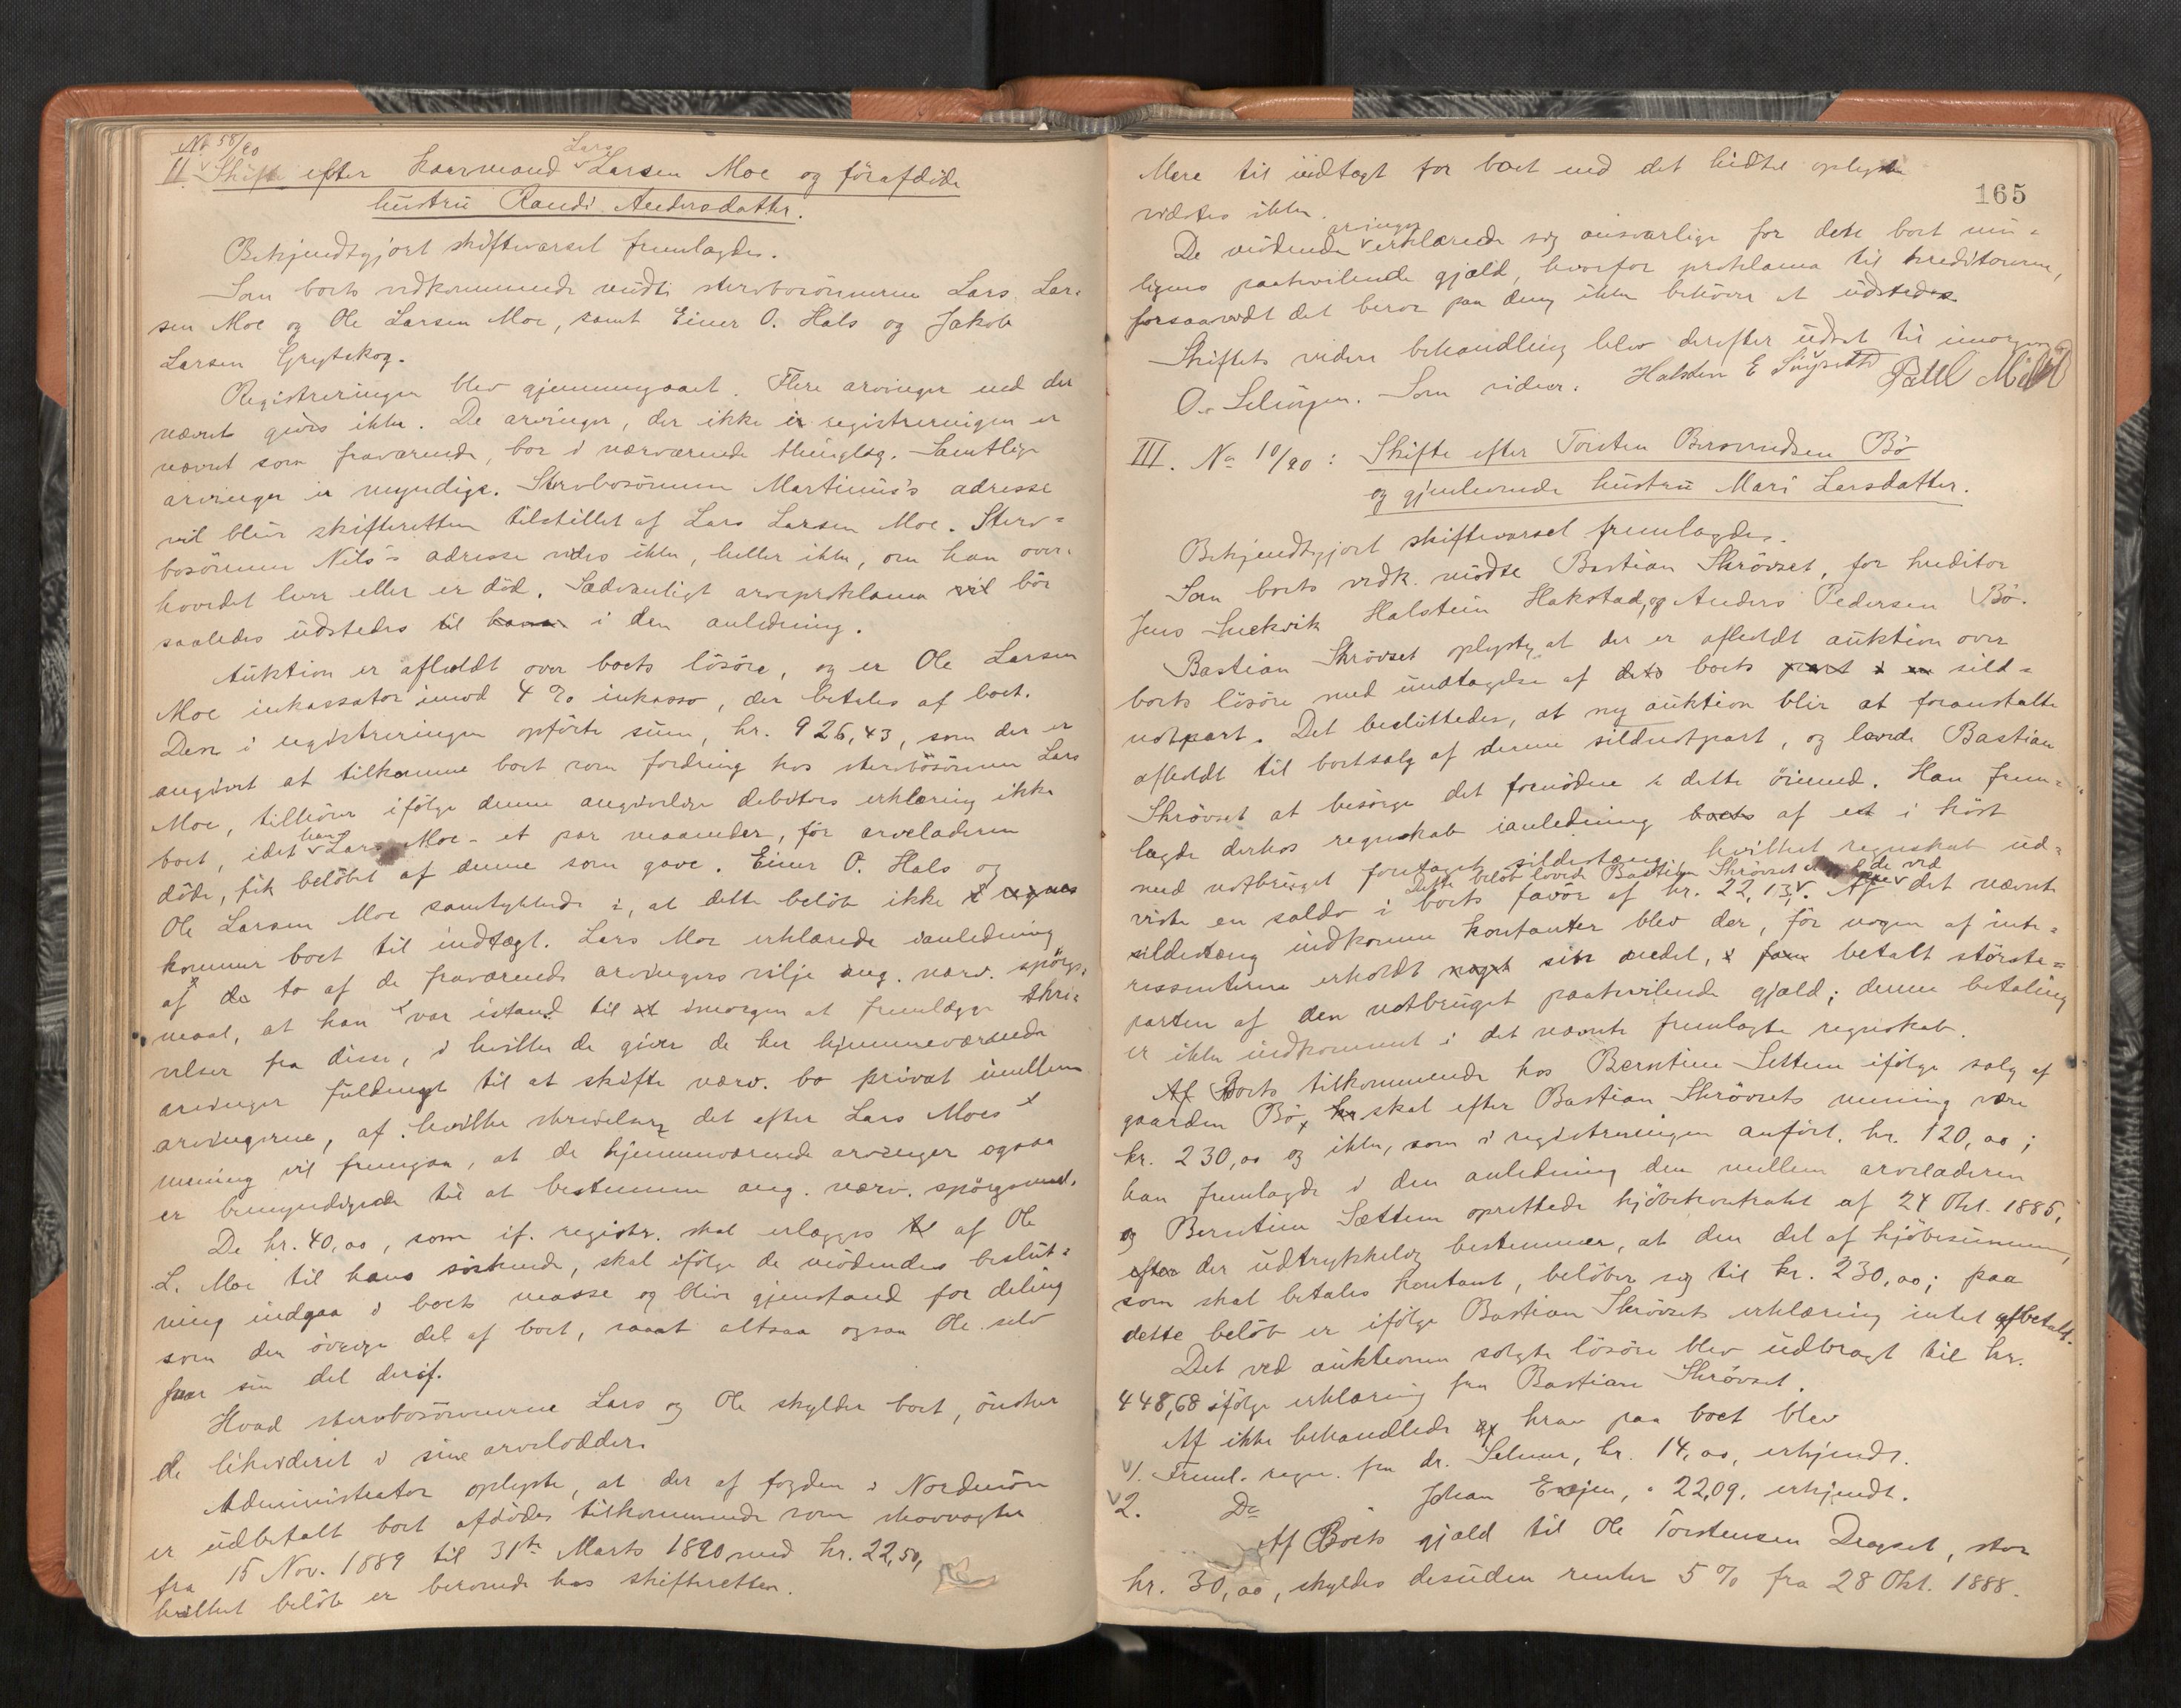 No 58/90
II. Skifte efter kaarmand Lars Larsen Moe og förafdöde
hustru Randi Andersdatter.
Bekjendtgjort skiftevarsel fremlagdes.
Som boets vedkommende mödte stervbosönnerne Lars Lar-
sen Moe og Ole Larsen Moe, samt Einer O. Hals og Jakob
Larsen Grytskog.
Registreringen blev gjennemgaaet. Flere arvinger end der
nævnt gives ikke. De arvinger, der ikke i registreringen er
nævnt som fraværende, bor i nærværende thinglag. Samtlige
arvinger er myndige. Stervbosönnen Martinus's adresse
vil blive skifteretten tilstillet af Lars Larsen Moe. Sterv-
bosönnen Nils's adresse vides ikke, heller ikke, om han over-
hovedet lever eller er död. Sædvanligt arveproklama vil bör
saaledes udstedes til ham i den anledning.
Auktion er afholdt over boets lösöre, og er Ole Larsen
Moe inkassator imod 4 % inkasso, der betales af boet.
Den i registreringen opförte sum, kr. 926,43, som der er
angivet at tilkomme boet som fordring hos stervbosönnen Lars
Moe, tilhörer ifölge denne angivelige debitors erklæring ikke
boet, idet han Lars Moe - et par maaneder, för arveladeren
döde, fik belöbet af denne som gave. Einer O. Hals og
Ole Larsen Moe samtykkede i, at dette belöb ikke i regnes
kommer boet til indtægt. Lars Moe erklærede ianledning
af de to af de fraværende arvingers vilje ang. nærv. spörgs-
maal, at han var istand til at imorgen at fremlægge skri-
velser fra disse, i hvilke de giver de her hjemmeværende
arvinger fuldmagt til at skifte nærv. bo privat imellem
arvingerne, af hvilke skrivelser det efter Lars Moes
mening vil fremgaa, at de hjemmeværende arvinger ogsaa
er bemyndigede til at bestemme ang. nærv. spörgsmaal.
De kr. 40,00, som if. registr. skal erlægges til af Ole
L. Moe til hans söskende, skal ifölge de mödendes beslut-
ning indgaa i boets masse og blive gjenstand for deling
som den övrige del af boet, saaat altsaa ogsaa Ole selv
faar sin del deraf.
Hvad stervbosönnerne Lars og Ole skylder boet, önsker
de likvideret i sine arvelodder.
Administrator oplyste, at der af fogden i Nordmör
er udbetalt boet afdödes tilkommende som skovvogter
fra 15 Nov. 1889 til 31te Marts 1890 med kr. 22,50,
hvilket belöb er beroende hos skifteretten.
165
Mere til indtægt for boet end det hidtil oplyste
vidstes ikke.
De mödende arvinger erklærede sig ansvarlige for dette boet mu-
ligens paahvilende gjæld, hvorfor proklama til kreditorerne,
forsaavidt det beror paa dem, ikke behöver at udstedes.
Skiftets videre behandling blev derefter udsat til imorgen.
O. Schiörn. Som vidner: Halsten E Snipsöth Paul
III. No 10/90: Skifte efter Torsten Berntsen Bö
og gjenlevende hustru Mari Larsdatter.
Bekjendtgjort skiftevarsel fremlagdes.
Som boets vedk. mödte Bastian Skrövset, for kreditor
Jens Snekvik Halstein Hakstad, og Anders Pedersen Bö.
Bastian Skrövset oplyste, at der er afholdt auktion over
boets lösöre med undtagelse af dets boets part i en sild-
notpart. Det besluttedes, at ny auktion blir at foranstalte
afholdt til bortsalg af denne sildnotpart, og lovede Bastian
Skrövset at besörge det fornödne i dette öiemed. Han frem-
lagde derhos regnskab ianledning boets af et i höst
med notbruget foretaget sildestæng, hvilket regnskab ud-
Dette belöb lovede Bastian Skrövset
viste en saldo i boets favör af kr. 22,13. Af de ved det nævnte
sildestæng indkomne kontanter blev der, för nogen af inte-
ressenterne erholdt noget sin andel, betalt störste-
parten af den notbruget paahvilende gjæld; denne betaling
er ikke indkommet i det nævnte fremlagte regnskab.
Af Boets tilkommende hos Berntine Settem ifölge salg af
gaarden Bö, kr skal efter Bastian Skrövsets mening være
kr. 230,00 og ikke, som i registreringen anfört, kr. 120,00;
han fremlagde i den anledning den mellem arveladeren
og Berntine Sættem oprettede kjöbekontrakt af 24 Okt. 1885,
efter der udtrykkelig bestemmer, at den del af kjöbesummen,
som skal betales kontant, belöber sig til kr. 230,00; paa
dette belöb er ifölge Bastian Skrövsets erklæring intet afbetalt.
Det ved auktionen solgte lösöre blev udbragt til kr.
448,68 ifölge erklæring fra Bastian Skrövset.
Af ikke behandlede krav paa boet blev
1. Freml. regn. fra dr. Selmer, kr. 14,00, erkjendt.
2. Do " Johan Evjen, " 22,09, erkjendt.
Af Boets gjæld til Ole Torstensen Dragset, stor
kr. 30,00, skyldes desuden renter 5 % fra 28 Okt. 1888.